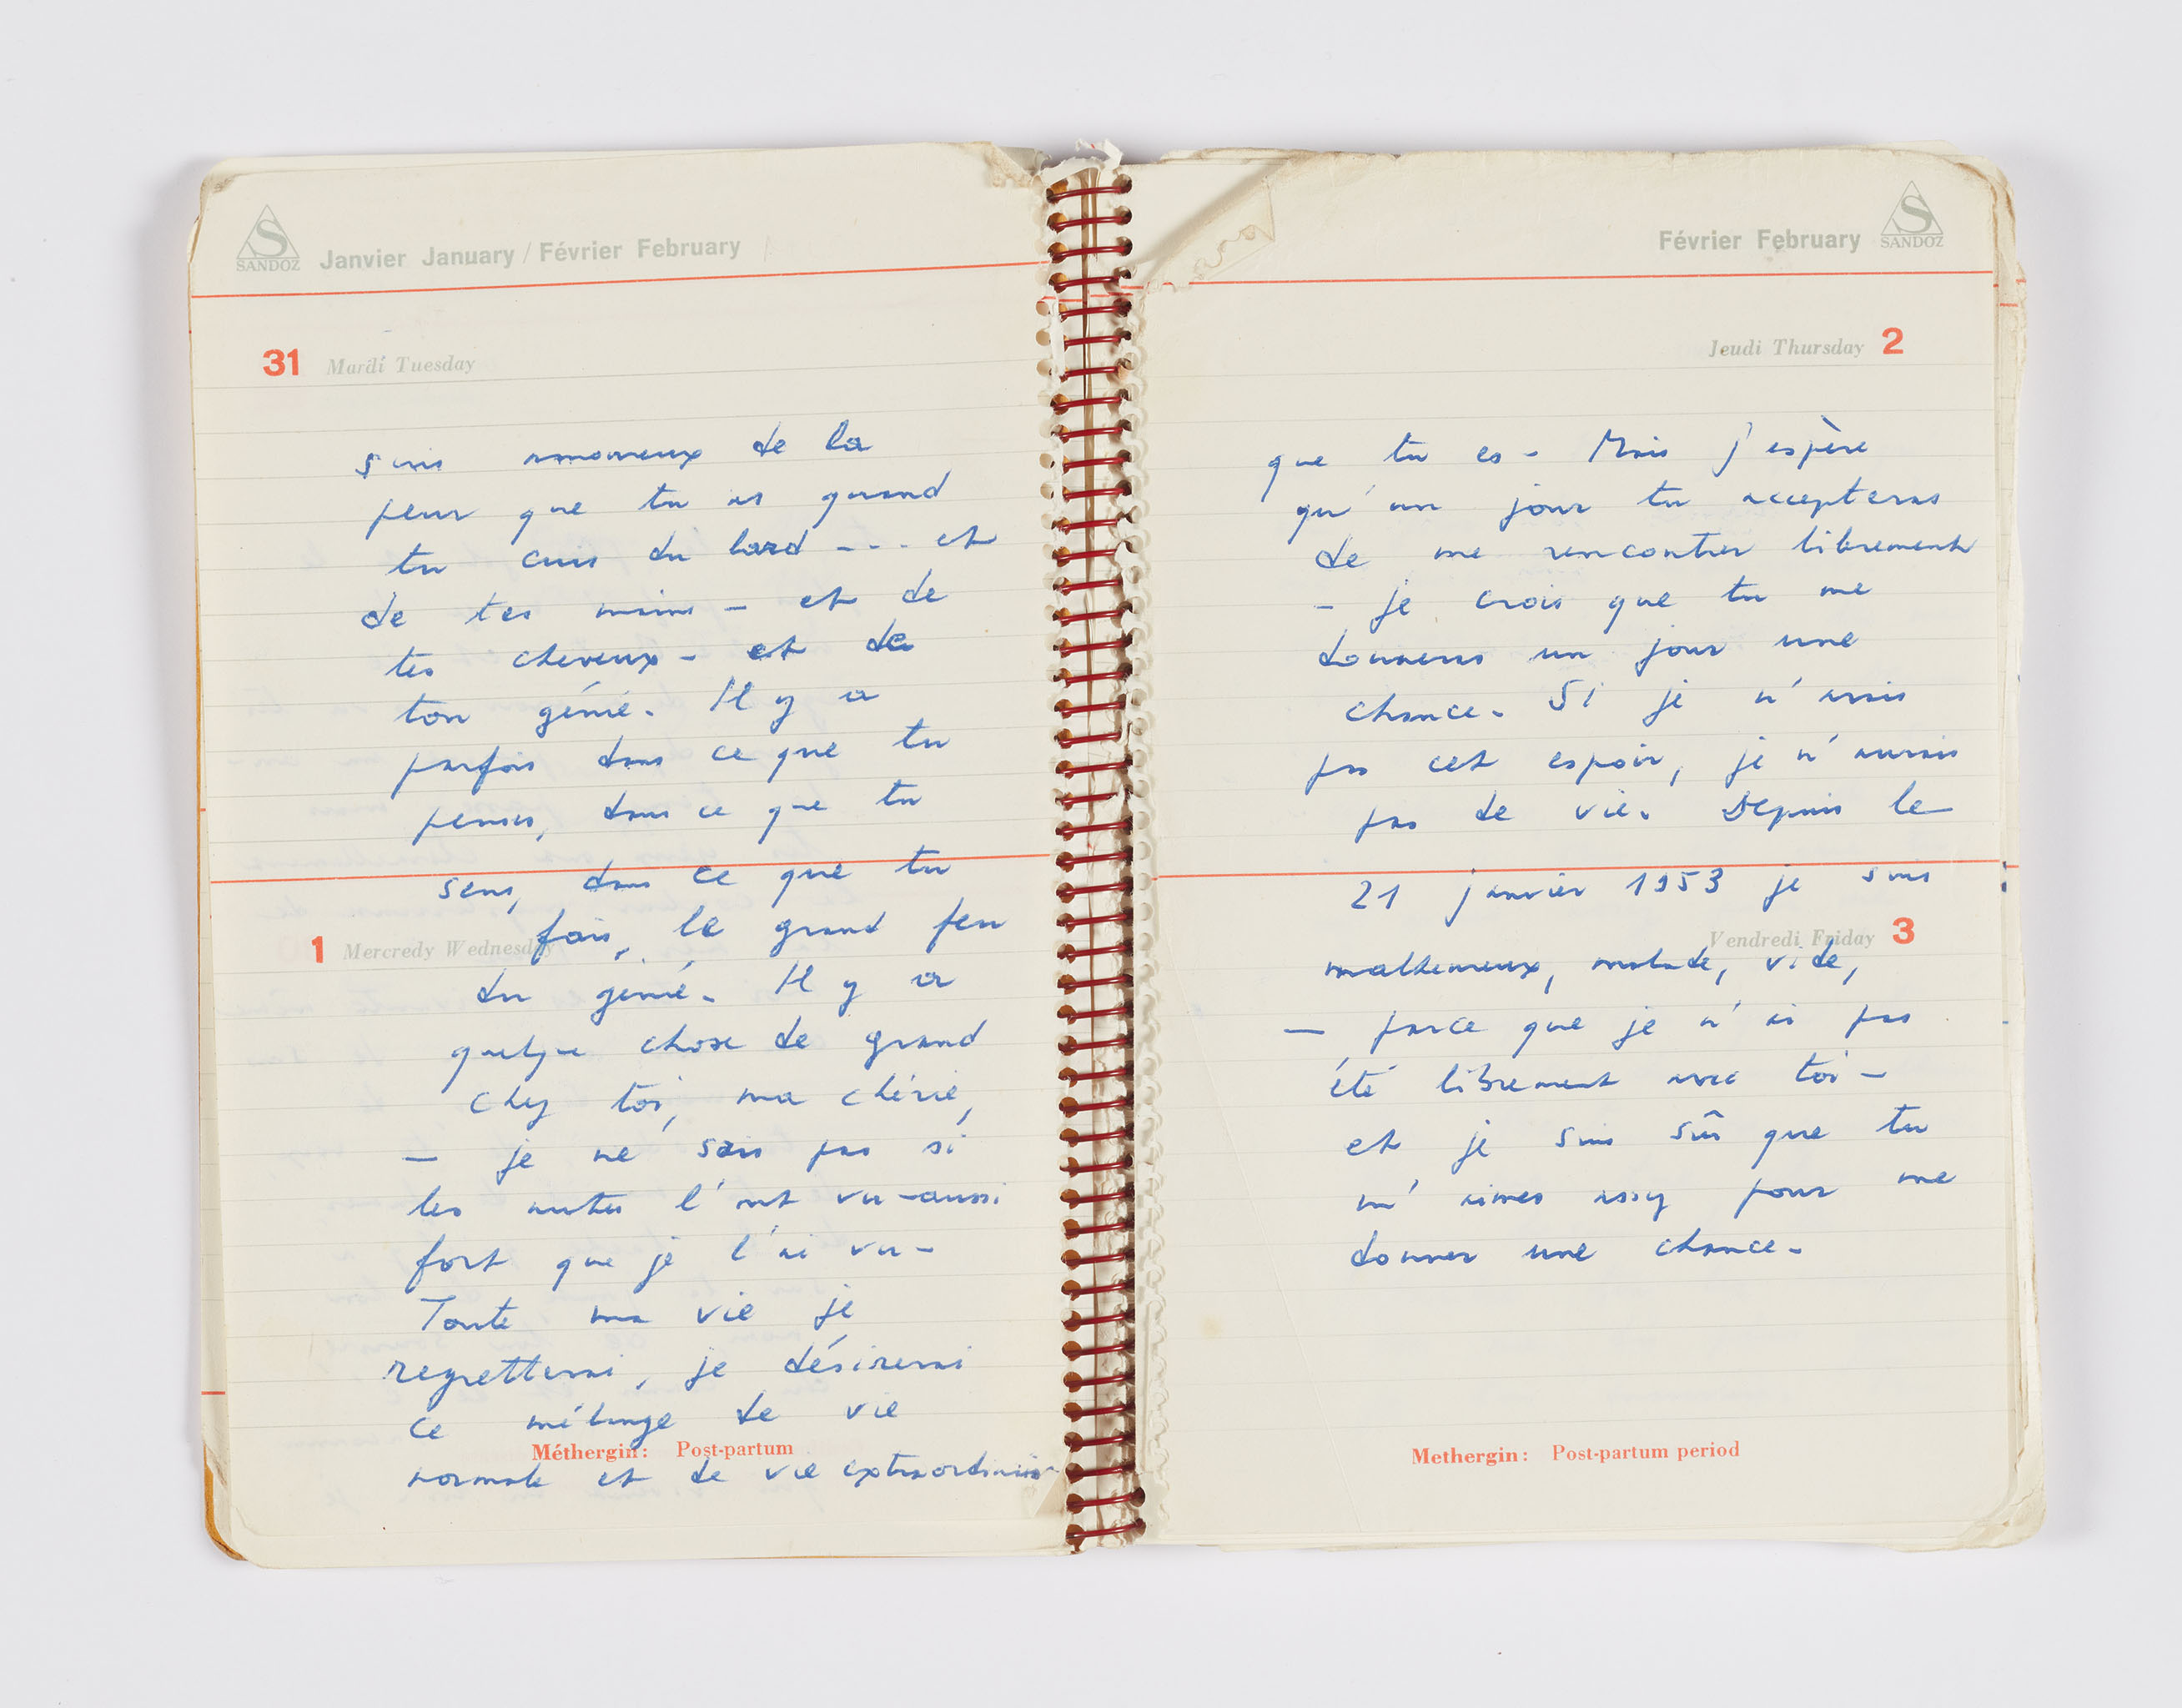 SANDOZ Janvier January / Février February
31 Mardi Tuesday
suis amoureux de la
peur que tu as quand
tu cuis du lard --- et
de tes mains - et de
tes cheveux - et de
ton génie. Il y a
parfois dans ce que tu
penses, dans ce que tu
sens, dans ce que tu
fais, le grand feu
1 Mercredy Wednesday
du génie. Il y a
quelque chose de grand
chez toi, ma chérie,
- je ne sais pas si
les autres l'ont vu aussi
fort que je l'ai vu -
Toute ma vie je
regretterai, je désirerai
ce mélange de vie
Méthergin: Post-partum
normale et de vie extraordinaire
Février February SANDOZ
Jeudi Thursday 2
que tu es - Mais j'espère
qu'un jour tu accepteras
de me rencontrer librement
- je crois que tu me
donneras un jour une
chance. Si je n'avais
pas cet espoir, je n'aurais
pas de vie. Depuis le
21 janvier 1953 je suis
Vendredi Friday 3
malheureux, malade, vide,
- parce que je n'ai pas
été librement avec toi -
et je suis sûr que tu
m'aimes assez pour me
donner une chance -
Methergin: Post-partum period